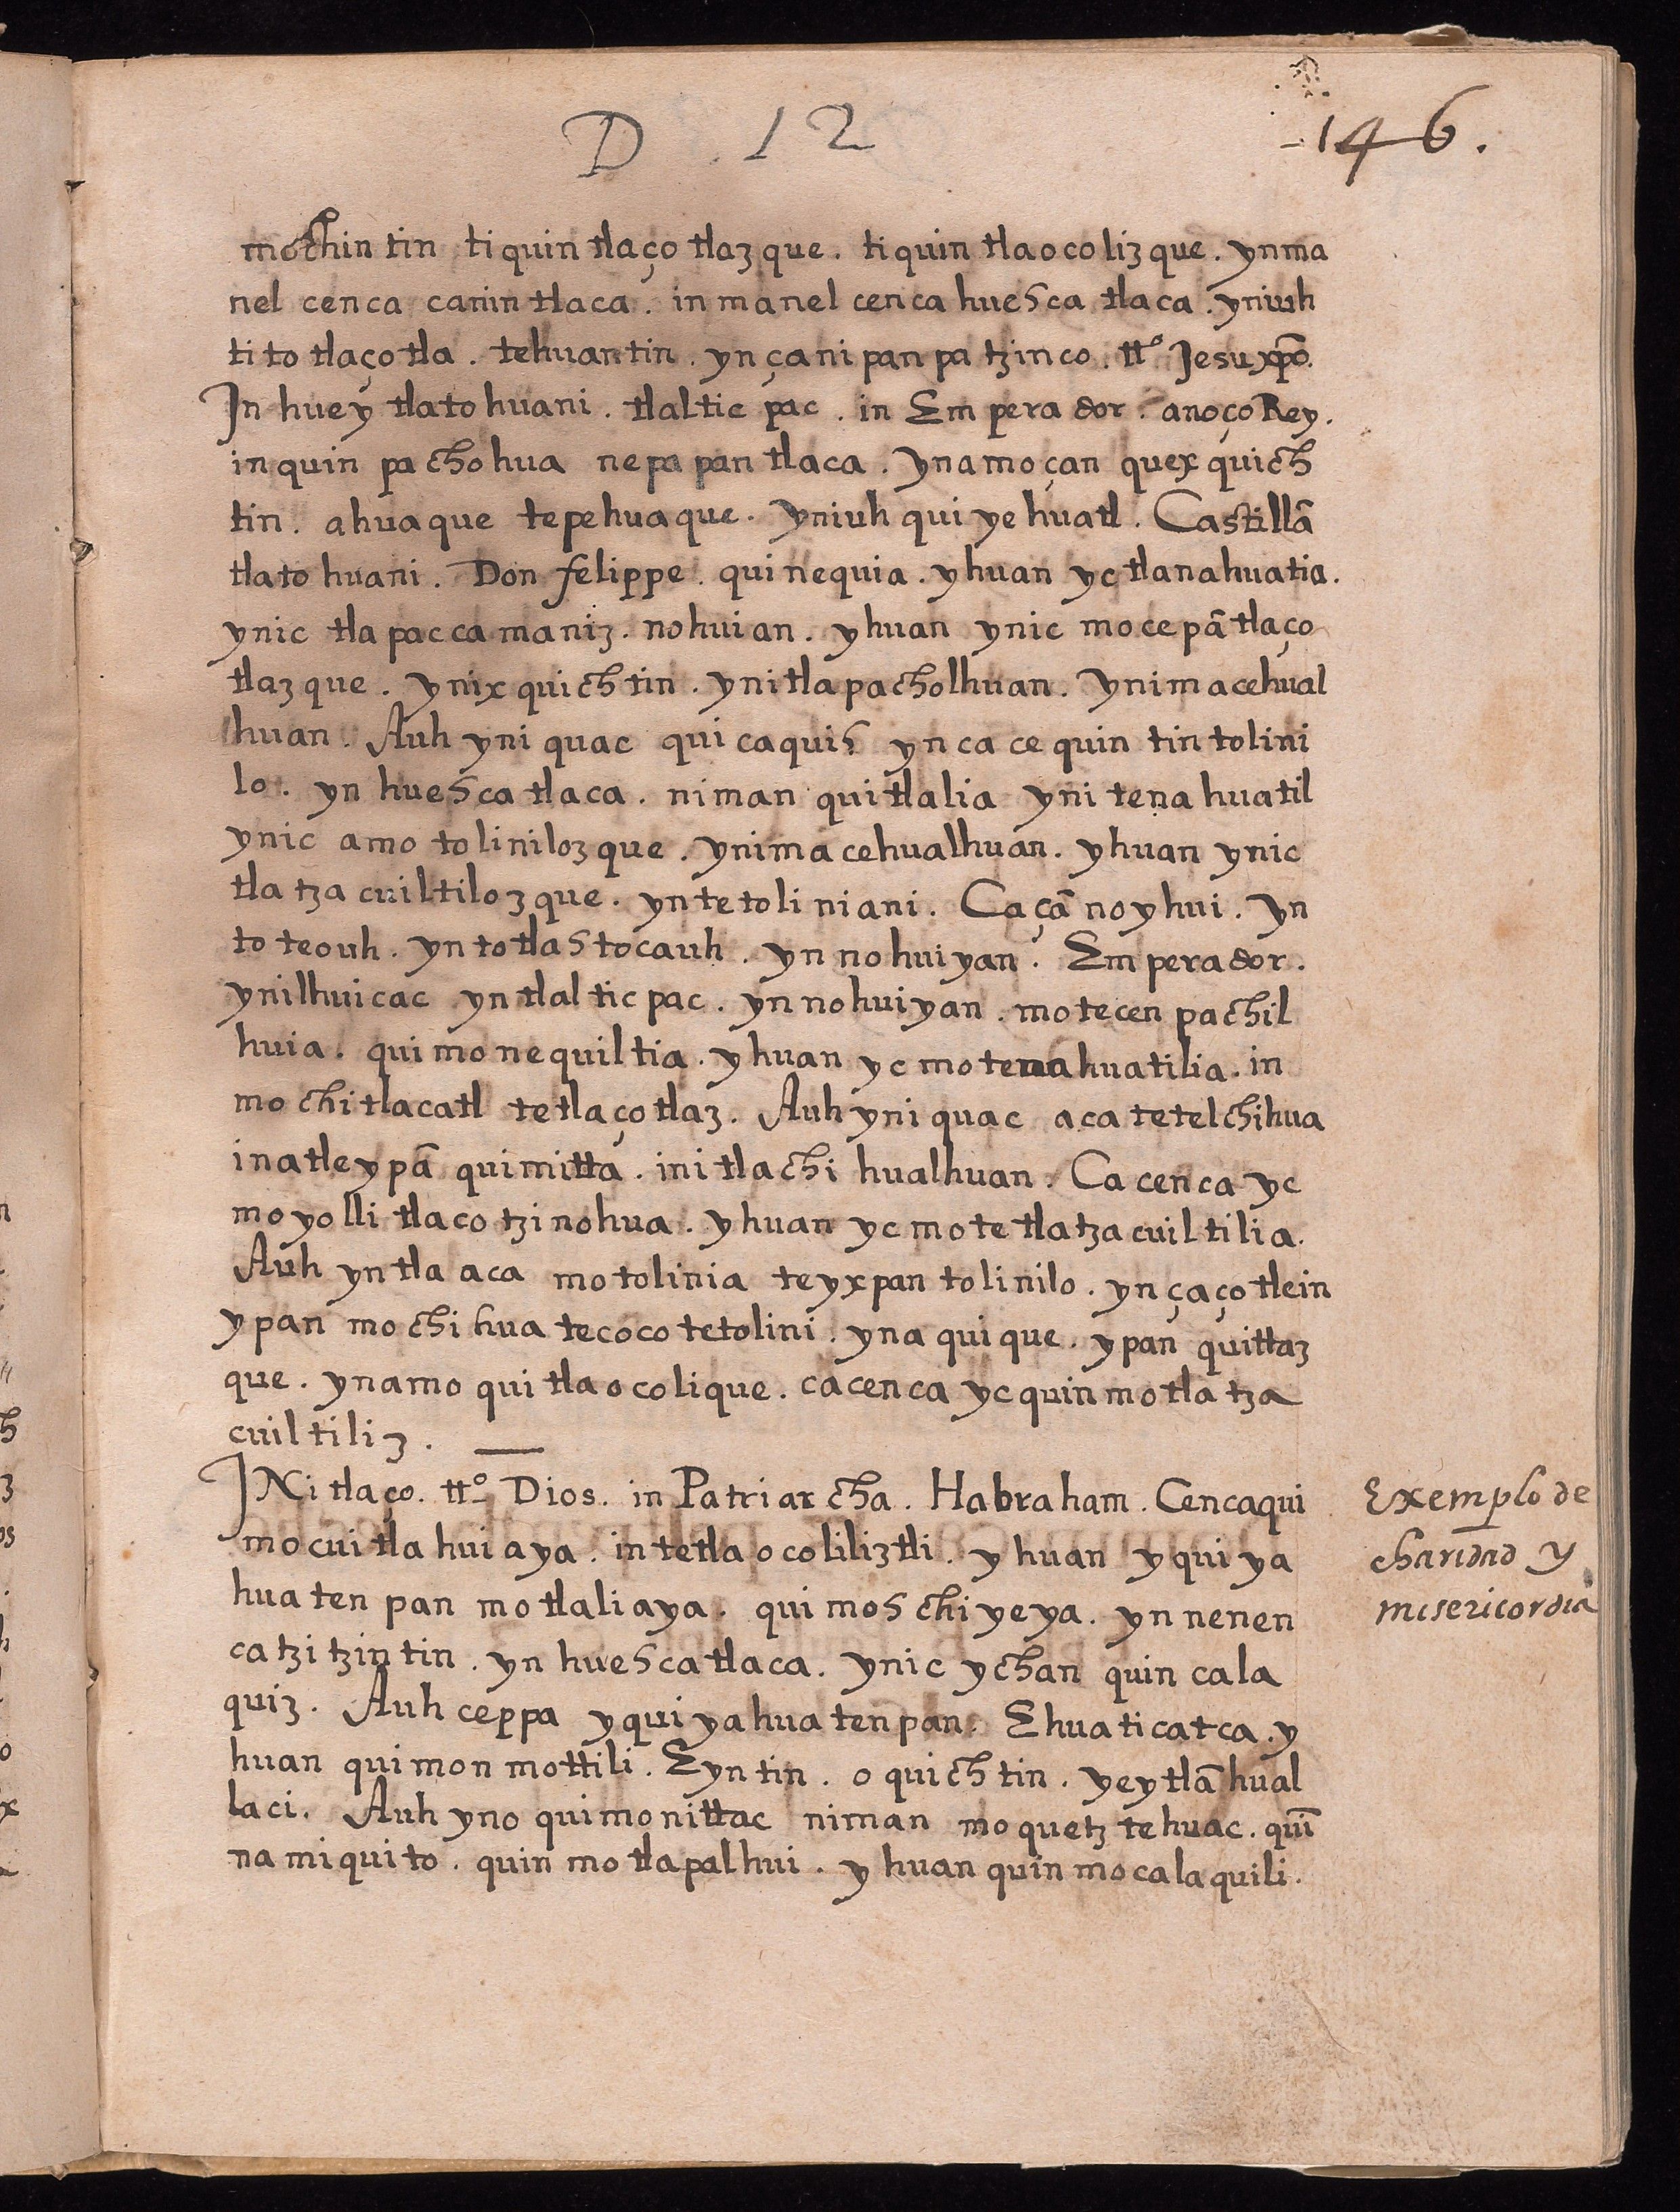 D 12
146.
mochin tin ti quin tlaço tlaz que. ti quin tlaoco liz que. ynma
nel cenca canin tlaca. in manel cenca huesca tlaca. yniuh
ti to tlaço tla. tehuantin. yn çanipan pa tzinco. tt.º Jesu xp̄o.
In huey tlatohuani. tlaltic pac. in Emperador. anoço Rey.
inquin pachohua nepapan tlaca. ynamo çan quex quich
tin. ahuaque tepehuaque. yniuh qui yehuatl. Castillā
tlato huani. Don felippe. quinequia. yhuan yc tlanahuatia.
ynic tla pacca maniz. nohuian. yhuan ynic mo ce pā tlaço
tlaz que. ynix quich tin. ynitla pacholhuan. ynimacehual
huan. Auh yni quac qui caquis yn ca ce quin tin tolini
lo. yn huesca tlaca. niman quitlalia yni tenahuatil
ynic amo toliniloz que. ynimacehualhuan. yhuan ynic
tla tza cuiltiloz que. yntetoliniani. Ca çā no yhui. yn
to teouh. yn totlas tocauh. yn nohuiyan. Emperador.
ynilhuicac yntlaltic pac. yn nohuiyan. motecen pachil
huia. quimonequiltia. yhuan yc motenahuatilia. in
mochi tlacatl tetlaço tlaz. Auh yni quac aca tetelchihua
inatleypā quimitta. initlachi hualhuan. Ca cenca yc
moyolli tlaco tzinohua. yhuan yc mote tlatza cuiltilia.
Auh yntla aca motolinia teyxpan tolinilo. yn çaço tlein
ypan mochihua tecoco tetolini. yna qui que. ypan quittaz
que. ynamo qui tlaocolique. ca cenca yc quinmo tla tza
cuiltiliz.
INi tlaço. tt.º Dios. in Patriarcha. Habraham. Cencaqui
mocuitlahuiaya. in tetlaocoliliztli. yhuan yquiya
huaten pan motlaliaya. quimoschiyeya. yn nenen
catzitzintin. yn huesca tlaca. ynic ychan quin cala
quiz. Auh ceppa yquiyahuatenpan. Ehuaticatca. y
huan quimon mottili. Eyntin. oquichtin. yeytlā hual
laci. Auh yno quimonittac niman moquetz tehuac. quī
namiquito. quin motlapalhui. yhuan quin mocalaquili.
Exemplo de
charidad y
misericordia